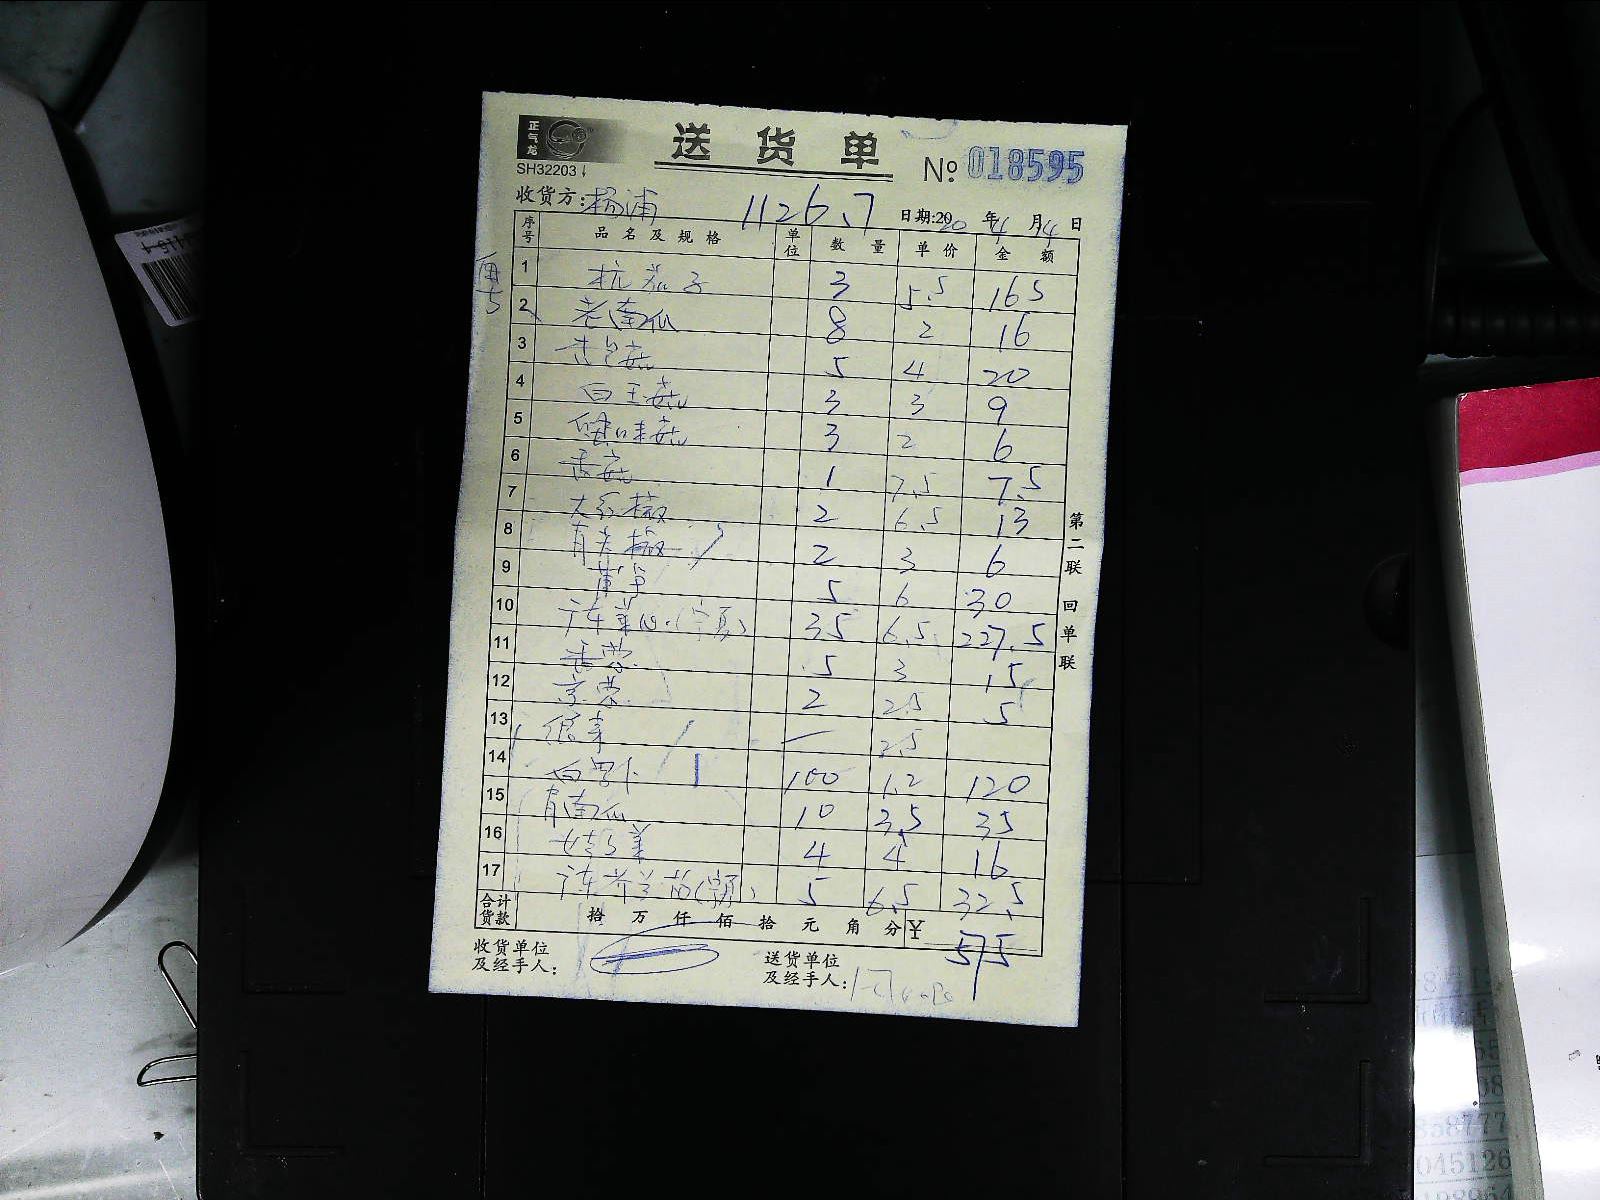 正气龙
送货单
SH32203
No 018595
收货方: 杨浦 1126.7 日期:2020年4月4日
序号 品名及规格 单位 数量 单价 金额
1 杭茄子 3 5.5 16.5
2 老南瓜 8 2 16
3 杏包菇 5 4 20
4 白玉菇 3 3 9
5 蟹味菇 3 2 6
6 香菇 1 7.5 7.5
7 大红椒 2 6.5 13
8 青尖椒 2 3 6
9 莴笋 5 6 30
10 广东菜心(宁夏) 35 6.5 227.5
11 香葱 5 3 15
12 京葱 2 2.5 5
13 2.5
14 白萝卜 100 1.2 120
15 青南瓜 10 3.5 35
16 4 4 16
17 广东芥兰苗(宁夏) 5 6.5 32.5
合计货款 拾万仟佰拾元角分 ¥ 575
收货单位及经手人:
送货单位及经手人:
第二联 回单联
58777
045126